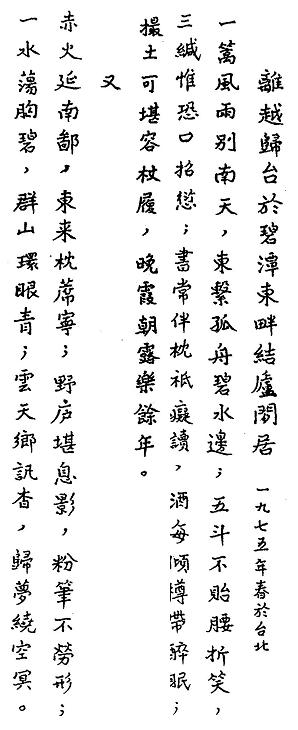 離越歸台於碧潭東畔結廬閒居 一九七五年春於台北
一篙風雨別南天，東繫孤舟碧水邊；五斗不貽腰折笑，
三緘惟恐口招愆；書常伴枕祇癡讀，酒每傾樽帶醉眠；
撮土可堪容杖履，晚霞朝露樂餘年。
又
赤火延南鄙，東来枕蓆寧；野庐堪息影，粉筆不勞形；
一水蕩胸碧，群山環眼青；雲天鄉訊杳，歸夢繞空冥。